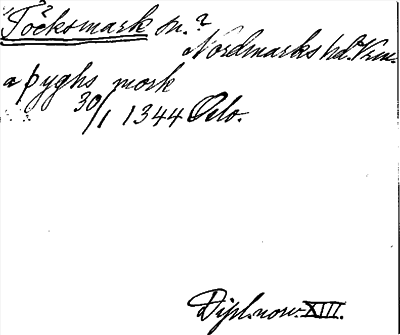 Töcksmark sn.?
Nordmarks hd. Vrm.
a þyghs mork
30/1 1344 Oslo.
Dipl. norv. XIII.